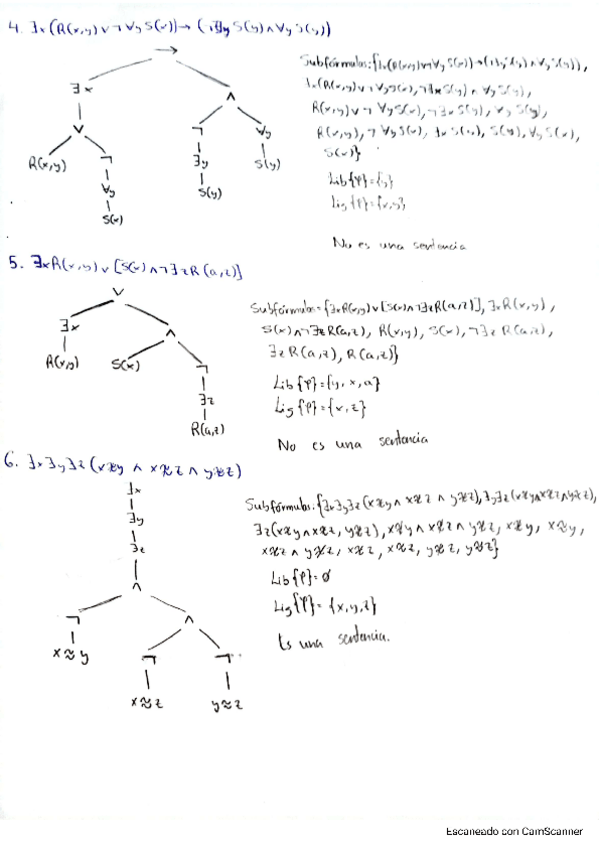 4. ∃x(R(x,y)∨¬∀yS(x))→(¬∃yS(y)∧∀yS(y))
→
∃x
∧
∨
¬
∀y
R(x,y)
¬
∃y
S(y)
∀y
S(y)
S(x)
Subfórmulas:
R(x,y)∨¬∀yS(x), ¬∃xS(y), ∀yS(y),
R(x,y), ¬∀yS(x), S(y), ∀yS(x),
S(x)}
Lib{φ}={y}
Lig{φ}={x,y}
No es una sentencia
5. ∃xR(x,y)∨[S(x)∧¬∃zR(a,z)]
∨
∃x
∧
R(x,y)
S(x)
¬
∃z
R(a,z)
Subfórmulas={∃xR(x,y)∨[S(x)∧¬∃zR(a,z)], ∃xR(x,y),
S(x)∧¬∃zR(a,z), R(x,y), S(x), ¬∃zR(a,z),
∃zR(a,z), R(a,z)}
Lib{φ}={y,x,a}
Lig{φ}={x,z}
No es una sentencia
6. ∃x∃y∃z(x≉y ∧ x≉z ∧ y≉z)
∃x
∃y
∃z
∧
¬
∧
x≈y
¬
¬
x≈z
y≈z
Subfórmulas:{∃x∃y∃z(x≉y∧x≉z∧y≉z), ∃y∃z(x≉y∧x≉z∧y≉z),
∃z(x≉y∧x≉z, y≉z), x≉y∧x≉z∧y≉z, x≉y, x≈y,
x≉z∧y≉z, x≉z, x≈z, y≉z, y≈z}
Lib{φ}=∅
Lig{φ}={x,y,z}
Es una sentencia.
Escaneado con CamScanner